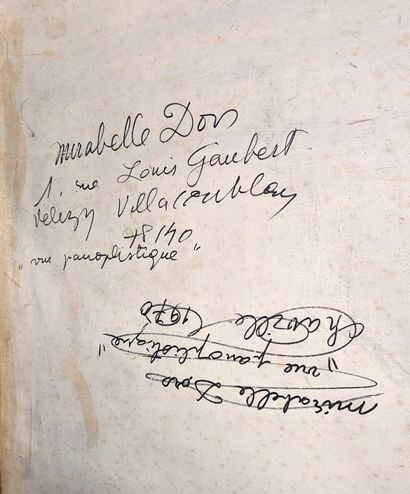 mirabelle Dors
1, rue Louis Gaubert
Velizy Villacoublay
78140
"vue panoptistique"
mirabelle Dors
"vue panoptistique"
Chaville (1970)